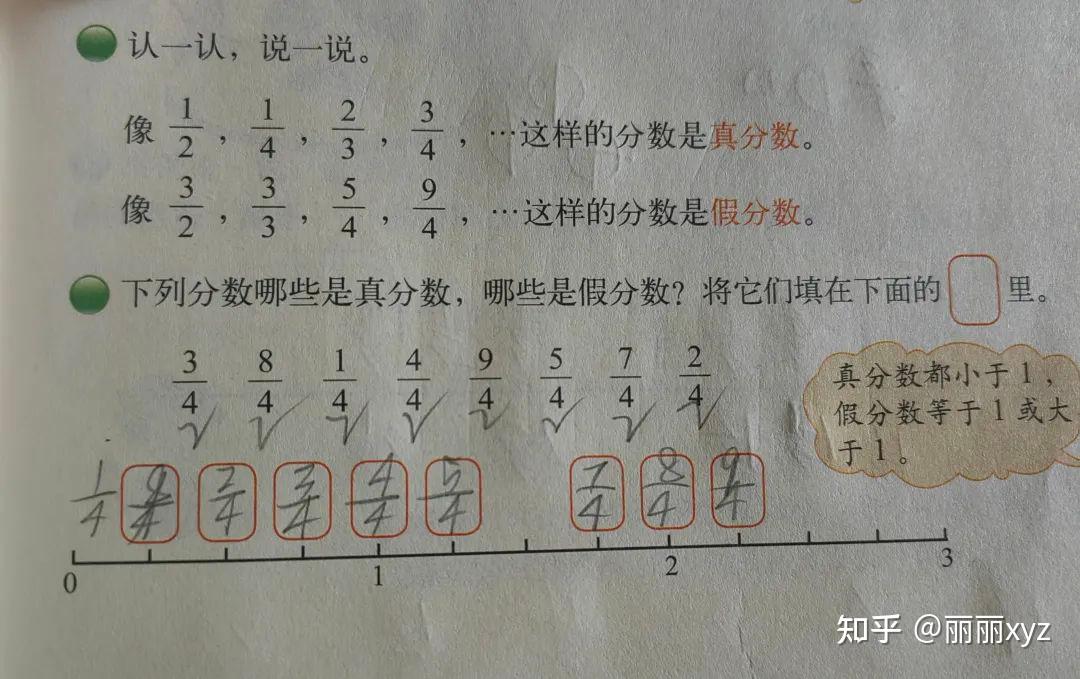 认一认，说一说。
像 1/2 ， 1/4 ， 2/3 ， 3/4 ，…这样的分数是真分数。
像 3/2 ， 3/3 ， 5/4 ， 9/4 ，…这样的分数是假分数。
下列分数哪些是真分数，哪些是假分数？将它们填在下面的 里。
3/4 8/4 1/4 4/4 9/4 5/4 7/4 2/4
真分数都小于1，
假分数等于1或大
于1。
1/4 2/4 3/4 4/4 5/4 7/4 8/4 9/4
0 1 2 3
知乎 @丽丽xyz